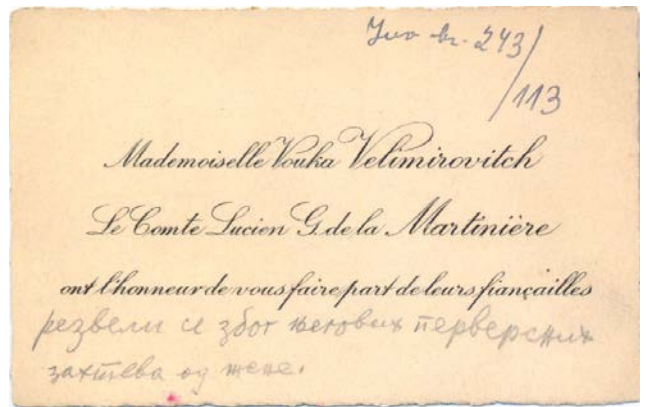 Inv br. 243/
/113
Mademoiselle Vouka Velimirovitch
Le Comte Lucien G. de la Martinière
ont l'honneur de vous faire part de leurs fiançailles
резвели се због његових перверсних
захтева од жене.